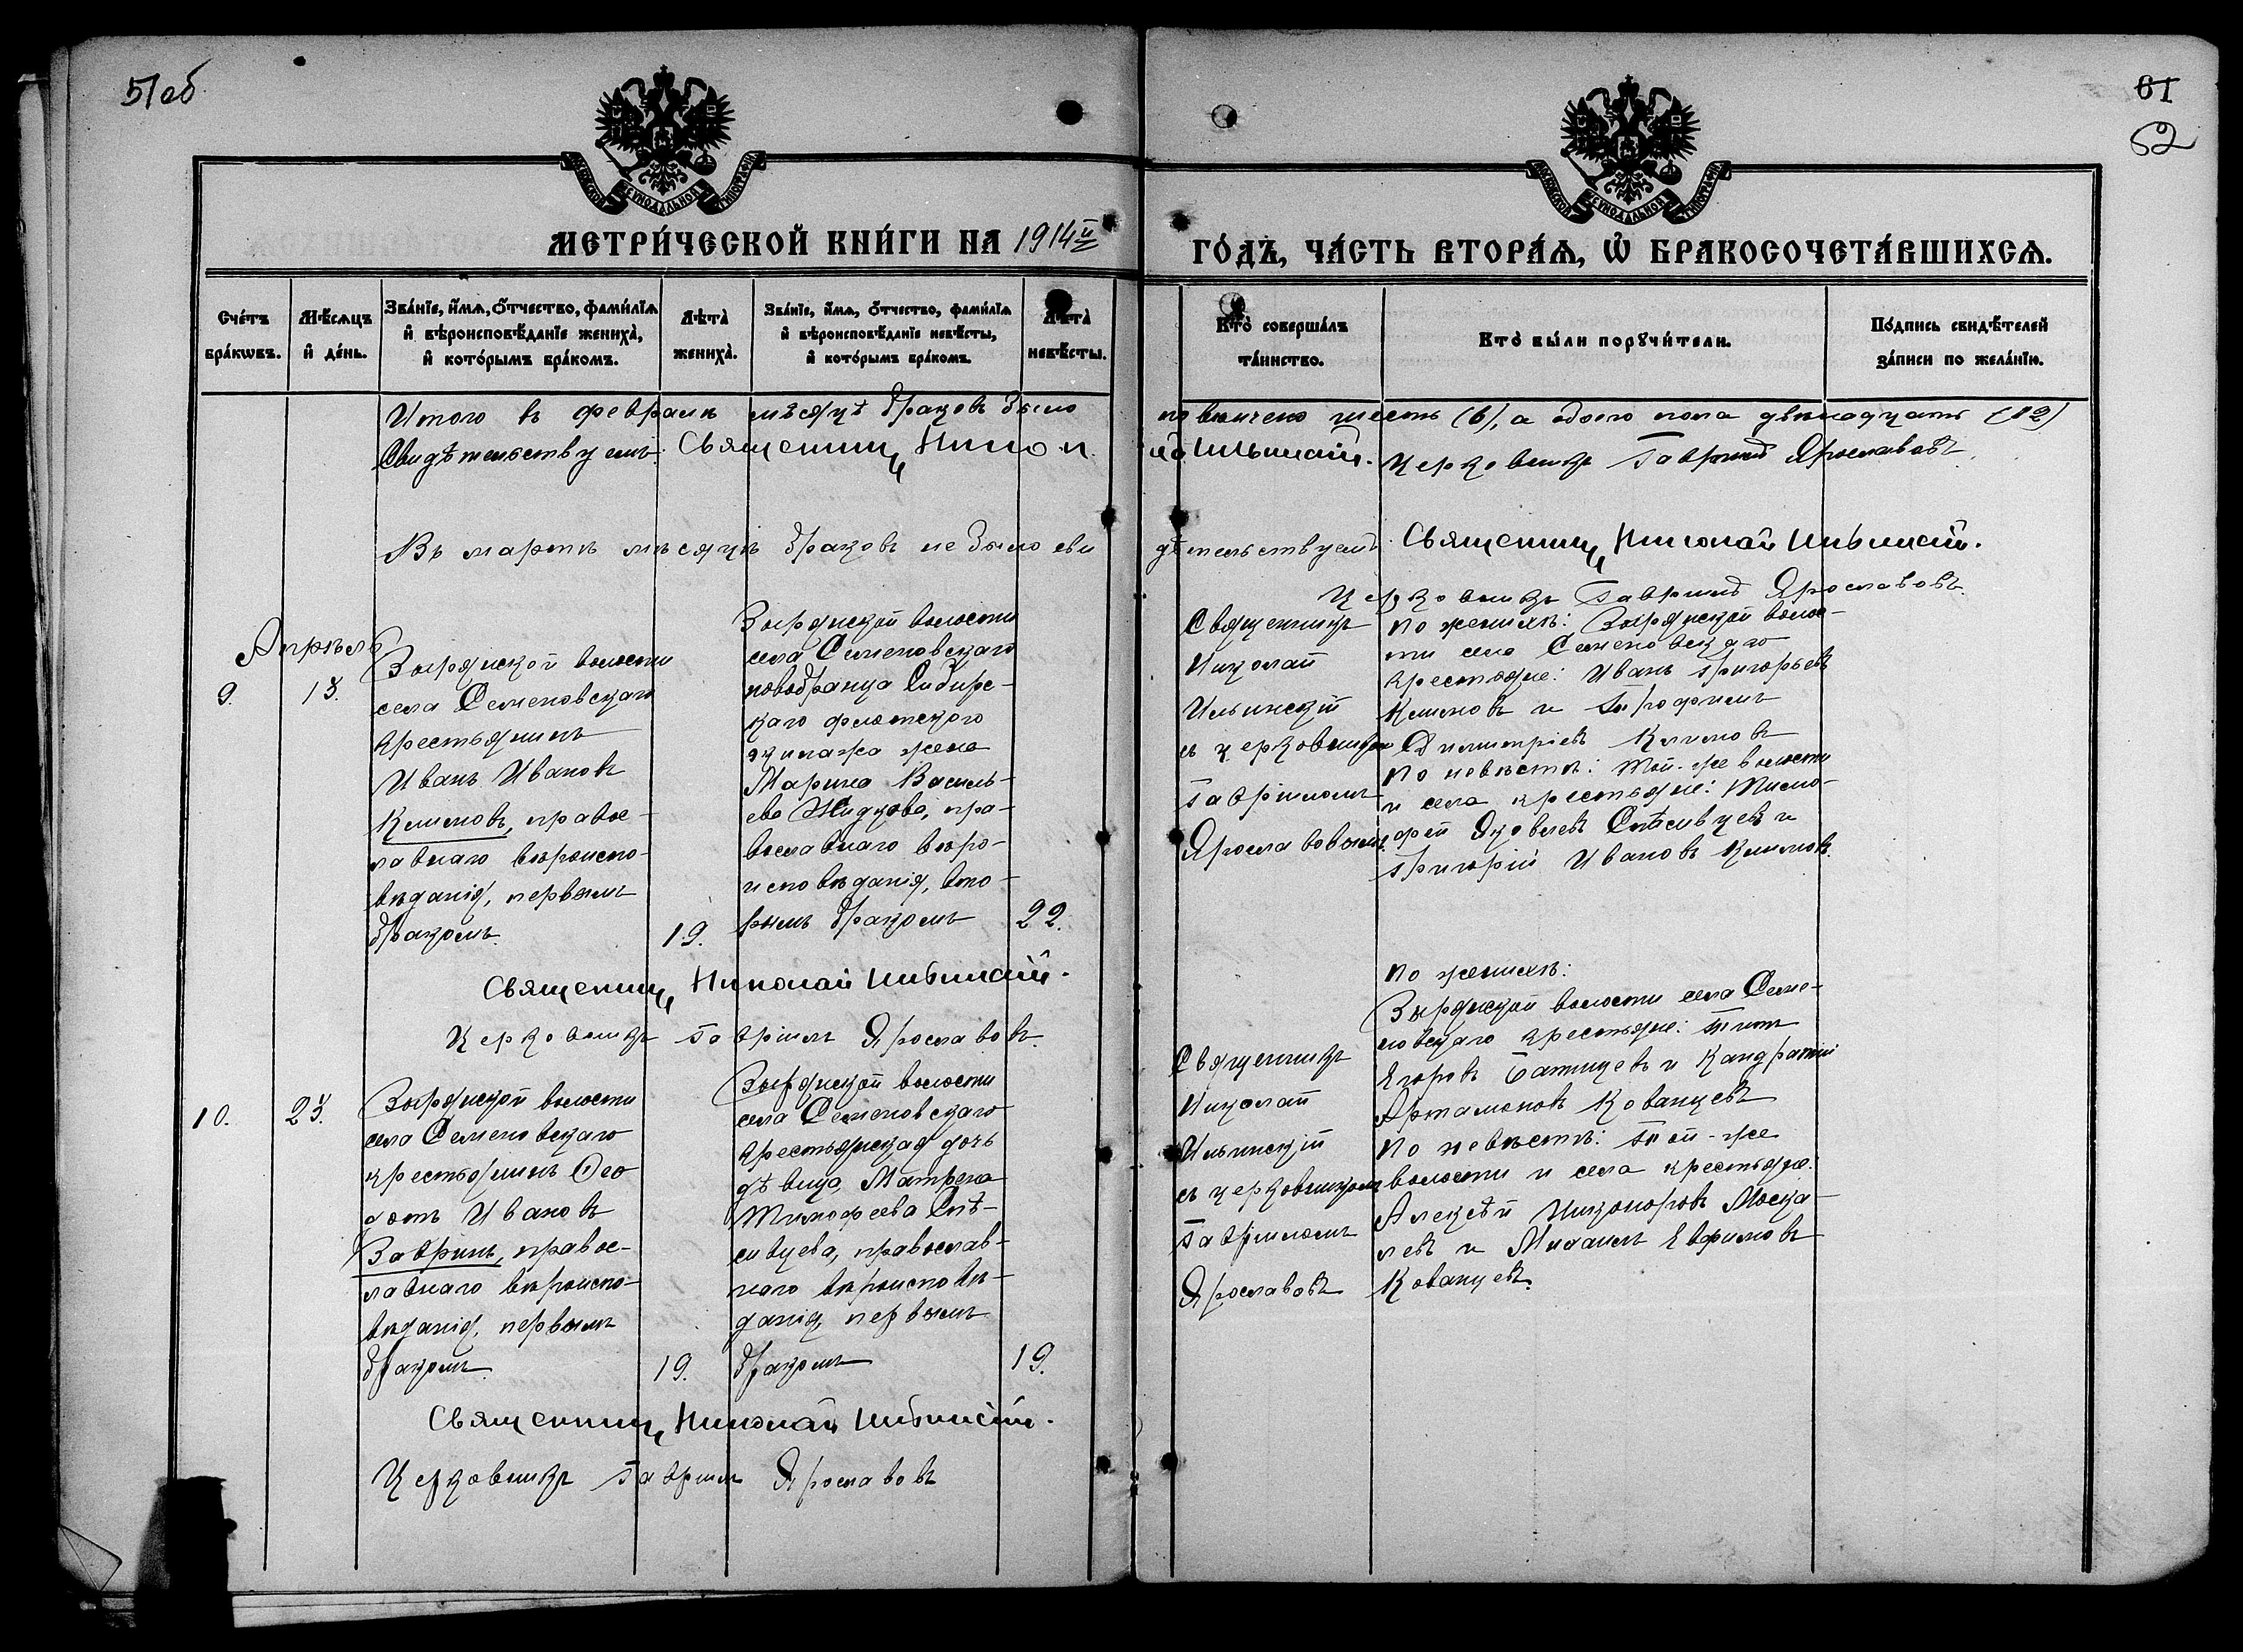 51 об
61
52
МЕТРИ́ЧЕСКОЙ КНИ́ГИ НА 1914й
ГО́ДЪ, ЧА́СТЬ ВТОРА́Ѧ, Ѡ БРАКОСОЧЕТА́ВШИХСѦ.
Сче́тъ бра́кѡвъ.
Мѣ́сѧцъ и҆ де́нь.
Зва́нїе, и҆́мѧ, ѻ҆́тчество, фами́лїѧ и҆ вѣроисповѣ́данїе жениха̀, и҆ кото́рымъ бра́комъ.
Лѣта̀ жениха̀.
Зва́нїе, и҆́мѧ, ѻ҆́тчество, фами́лїѧ и҆ вѣроисповѣ́данїе невѣ́сты, и҆ кото́рымъ бра́комъ.
Лѣта̀ невѣ́сты.
Кто̀ соверша́лъ та́инство.
Кто̀ бы́ли порꙋчи́тели.
По́дпись свидѣ́телей за́писи по жела́нїю.
Итого въ февралѣ мѣсяцѣ браковъ было
повѣнчено шесть (6), а обоего пола двѣнадцать (12)
Свидѣтельствуемъ: Священникъ Никол
ай Ильинскій. Церковникъ Гавріилъ Ярославовъ
Въ мартѣ мѣсяцѣ браковъ не было сви
дѣтельствуемъ: Священникъ Николай Ильинскій.
Церковникъ Гавріилъ Ярославовъ.
Апрѣль
9.
13.
Зырянской волости
села Семеновскаго
крестьянинъ
Иванъ Ивановъ
Климовъ, правос-
лавнаго вѣроиспо-
вѣданія, первымъ
бракомъ.
19.
Зырянской волости
села Семеновскаго
новобранца Сибирс-
каго флотского
экипажа жена
Марина Василь-
ева Жидкова, пра-
вославнаго вѣро-
исповѣданія, вто-
рымъ бракомъ
22.
Священникъ
Николай
Ильинскій
съ церковникомъ
Гавріиломъ
Ярославовымъ.
по женихѣ: Зырянской волос-
ти села Семеновскаго
крестьяне: Иванъ Григорьевъ
Климовъ и Трофимъ
Димитріевъ Климовъ
по невѣстѣ: той-же волости
и села крестьяне: Тимо-
фей Яковлевъ Спѣсивцевъ и
Григорій Ивановъ Климовъ.
Священникъ Николай Ильинскій.
Церковникъ Гавріилъ Ярославовъ.
10.
23.
Зырянской волости
села Семеновскаго
крестьянинъ Ѳео
дотъ Ивановъ
Завринъ, правос-
лавнаго вѣроиспо-
вѣданія, первымъ
бракомъ.
19.
Зырянской волости
села Семеновскаго
крестьянская дочь
дѣвица, Матрена
Тимофеева Спѣ-
сивцева, православ-
наго вѣроисповѣ-
данія, первымъ
бракомъ
19.
Священникъ
Николай
Ильинскій
съ церковникомъ
Гавріиломъ
Ярославовъ
по женихѣ:
Зырянской волости села Семе-
новскаго крестьяне: Титъ
Егоровъ Батищевъ и Кандратій
Артамоновъ Кованцевъ
по невѣстѣ: той-же
волости и села крестьяне:
Алексѣй Никоноровъ Моска-
левъ и Михаилъ Евфимовъ
Кованцевъ.
Священникъ Николай Ильинскій.
Церковникъ Гавріилъ Ярославовъ